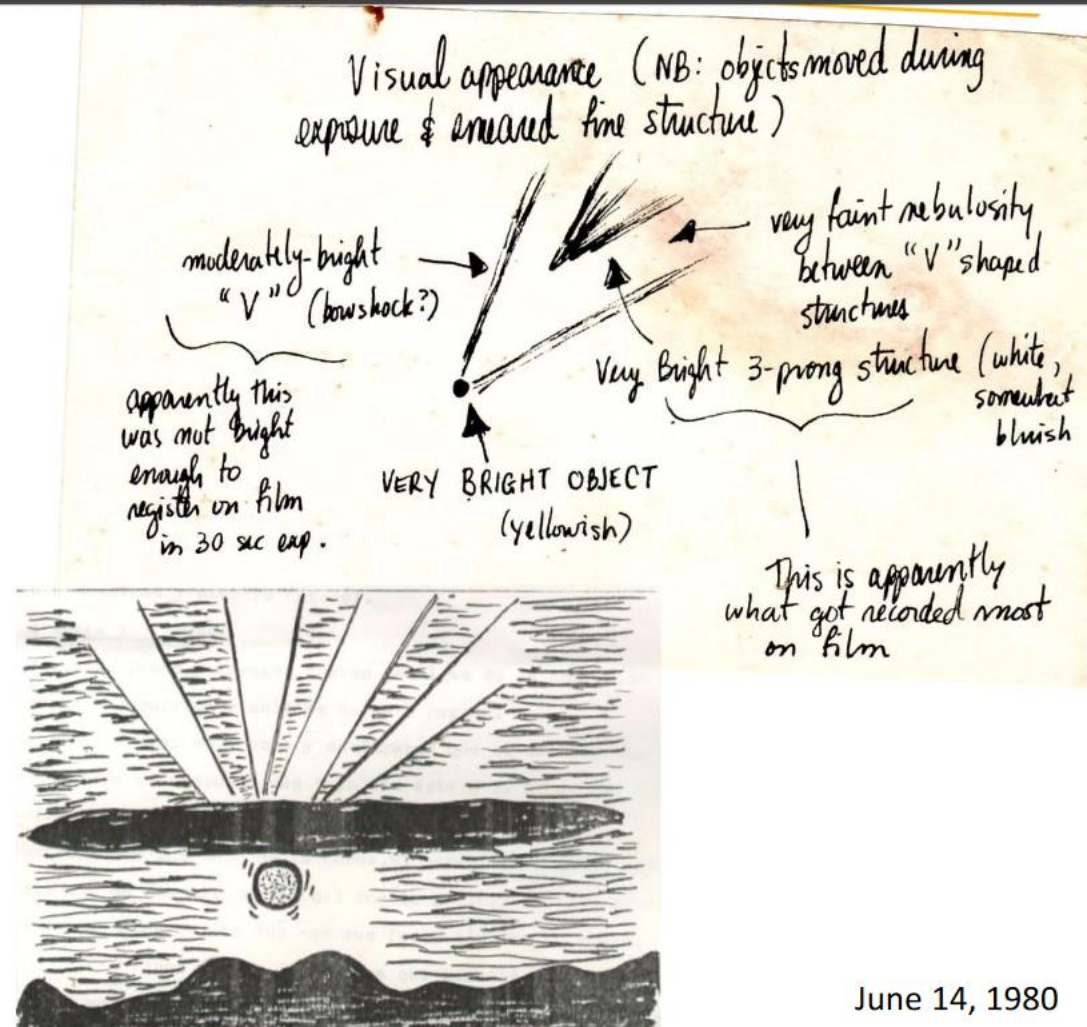 Visual appearance (NB: objects moved during
exposure & smeared fine structure)
moderately-bright
"V" (bowshock?)
very faint nebulosity
between "V" shaped
structures
Very Bright 3-prong structure (white,
somewhat
bluish
apparently this
was not bright
enough to
register on film
in 30 sec exp.
VERY BRIGHT OBJECT
(yellowish)
This is apparently
what got recorded most
on film
June 14, 1980